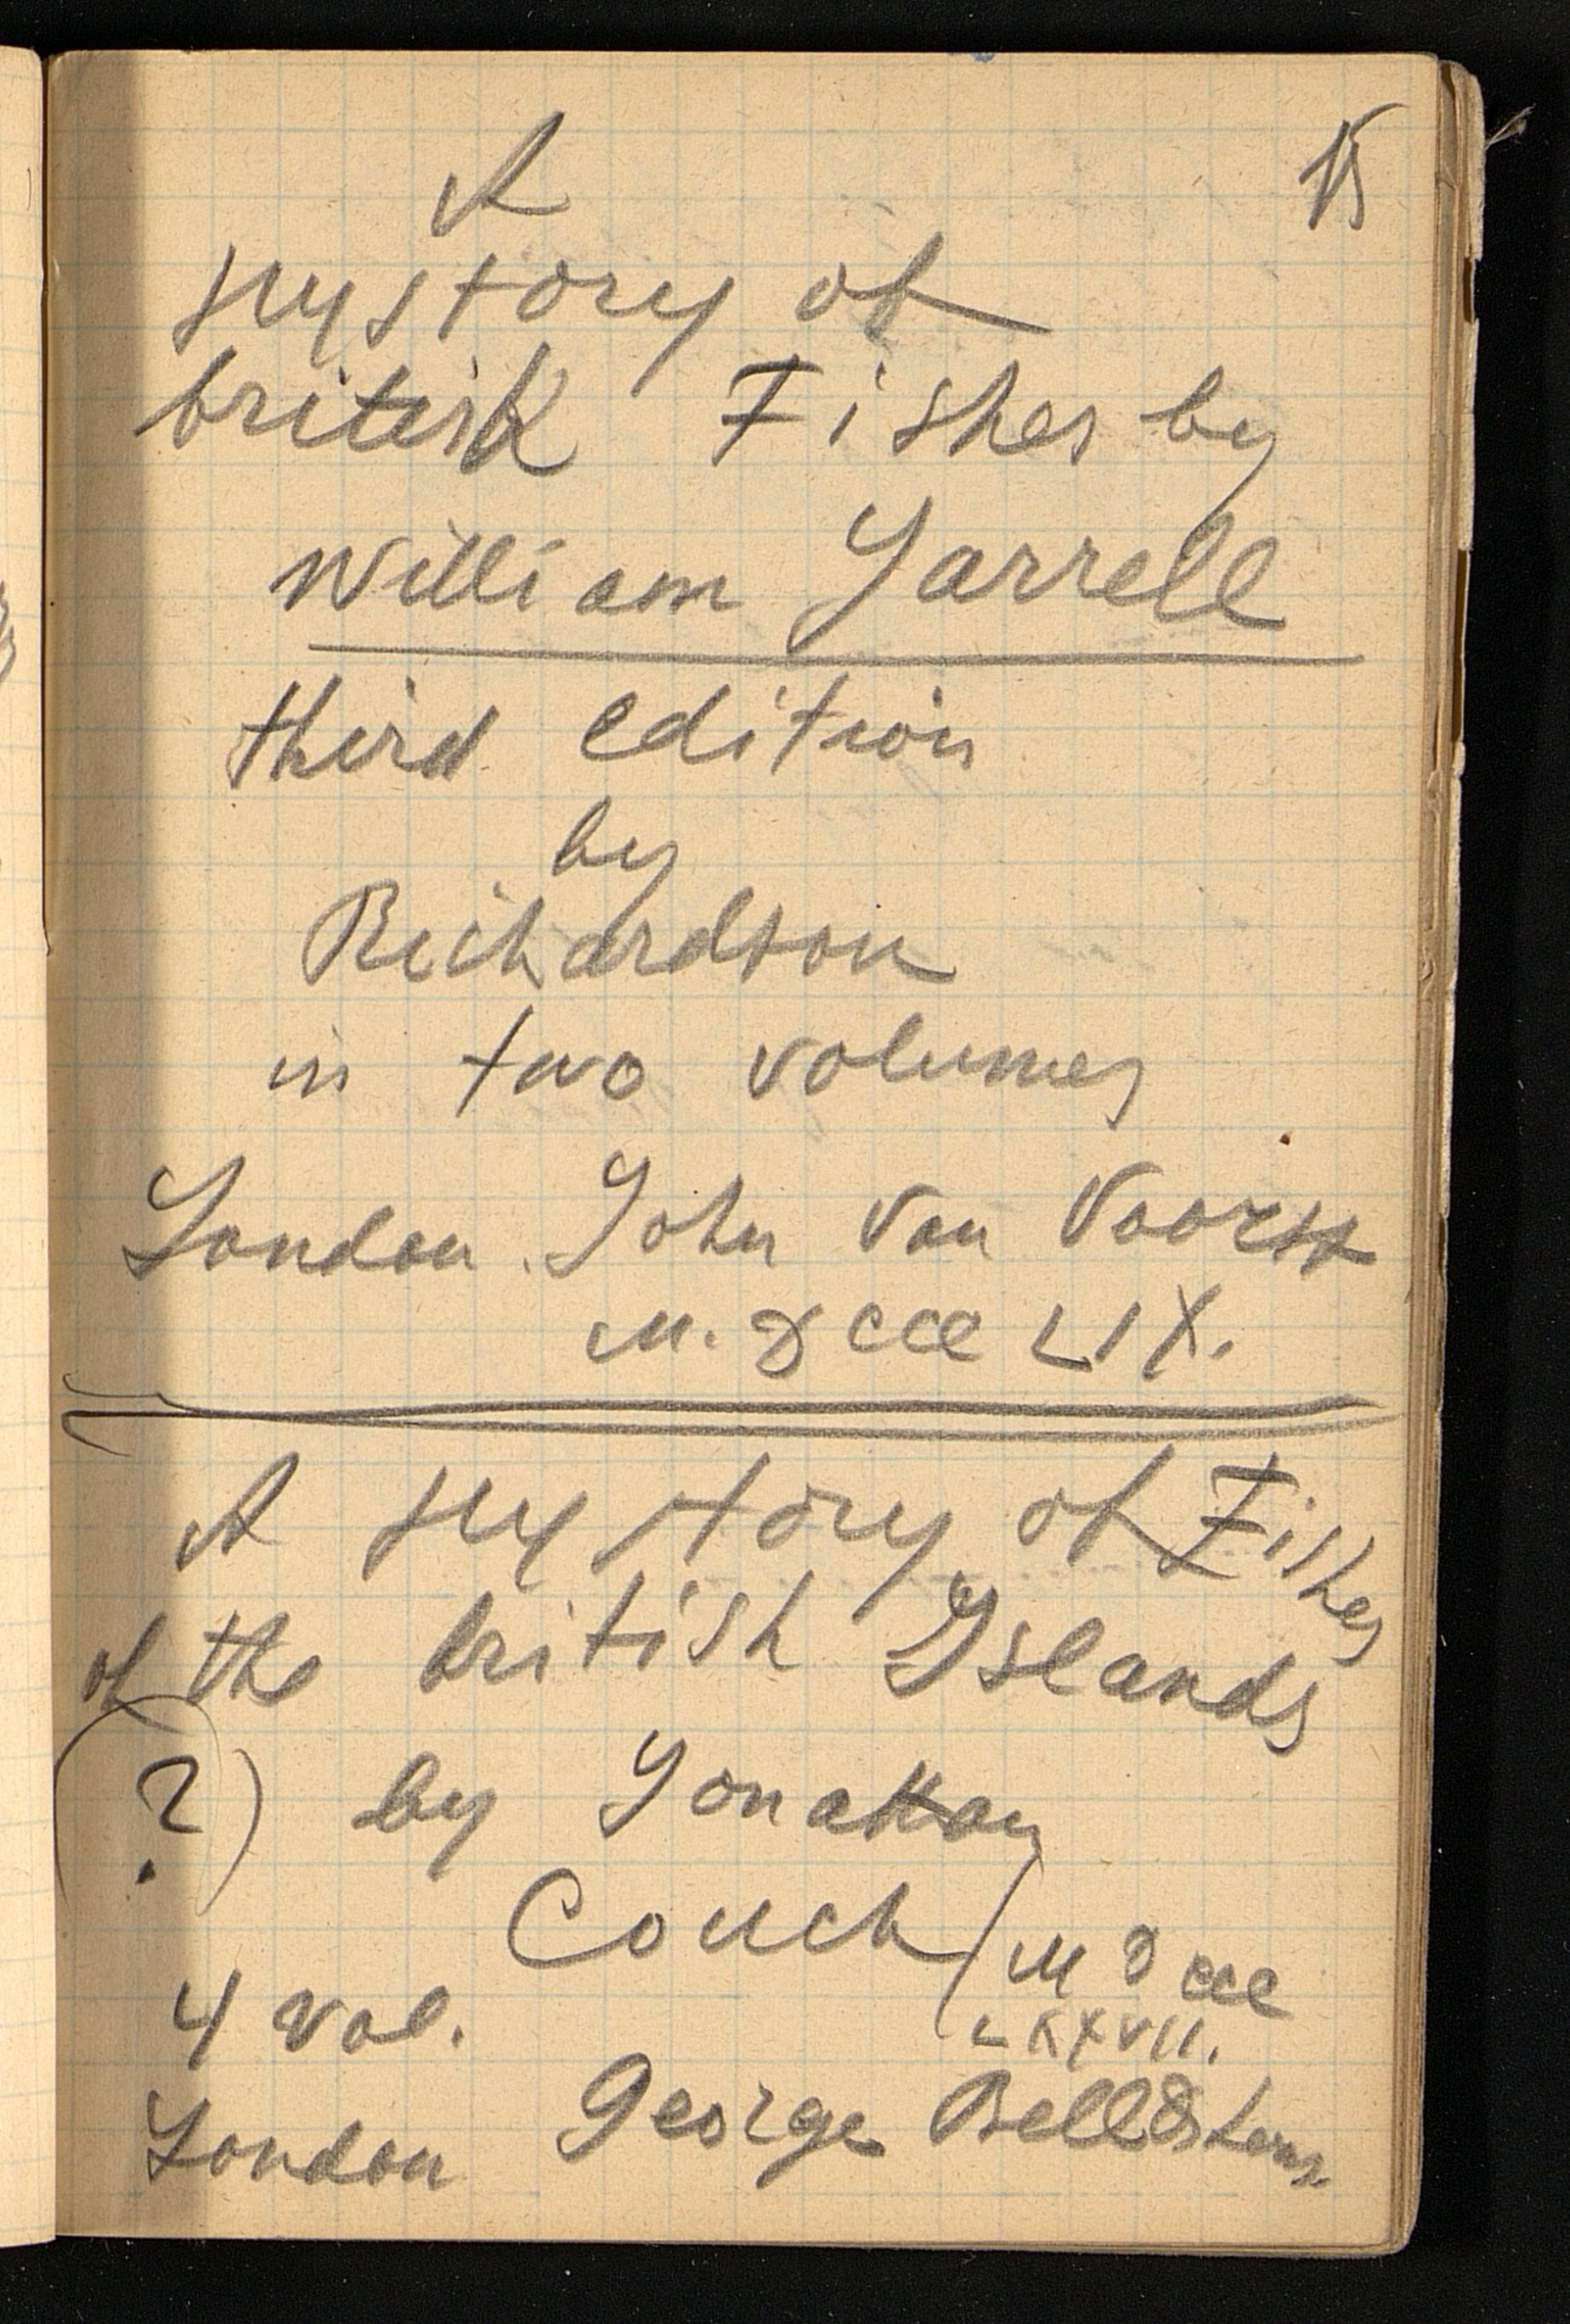 15
A
Hystory of
british Fishes by
William Yarrell
third edition
by
Richardson
in two volumes
London. John Van Voorst
M. D CCC LIX.
A Hystory of Fishes
of the british Islands
(?) by Jonathan
Couch
M D CCC
LXXVII.
4 vol.
London George Bell & Sons